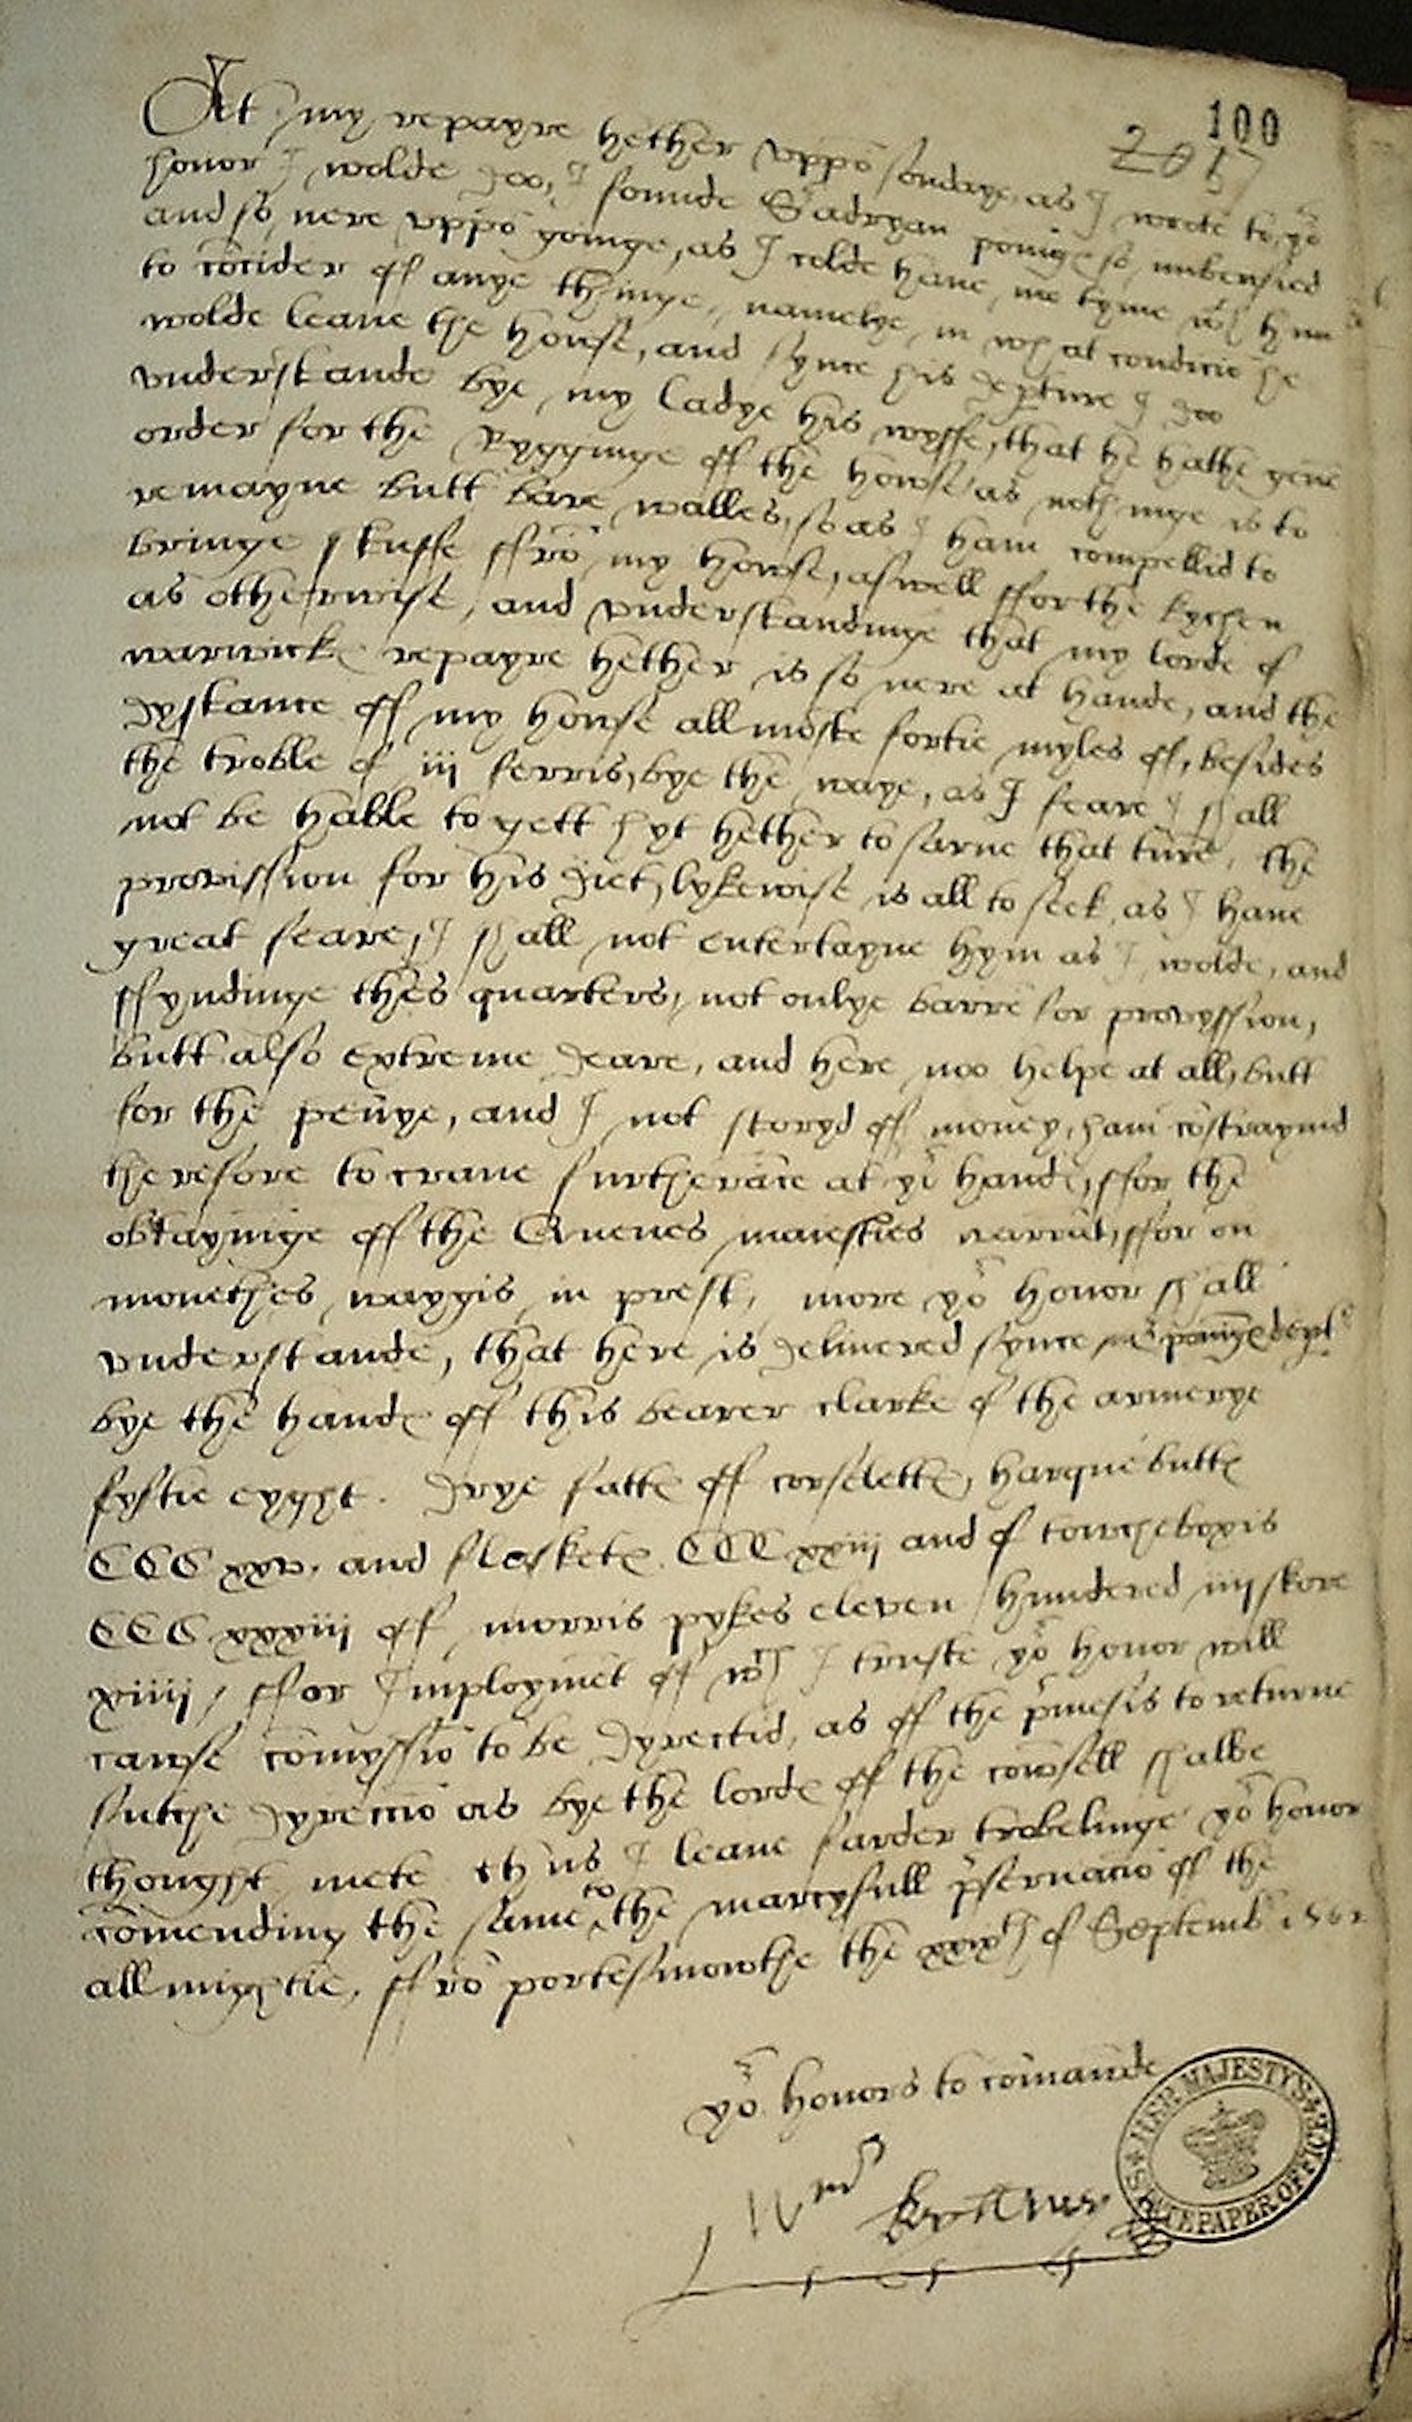 100
2017
At my repayre hether uppō sondaye, as I wrote to yor
honor I wolde doo, I founde Sr adryan poninge so unbensied
and so nere uppō goinge, as I colde have no tyme wth hym
to cōcider off anye thinge, namelye in what condiciō he
wolde leave the howse, and synce his depture I doo
understande bye my ladye his wyffe, that he hathe gevē
order for the Rygginge off the howse as nothinge is to
remayne butt bare walles, so as I ham compellid to
bringe stuffe ffrō my howse, aswell ffor the kychen
as otherwise, and understandinge that my lorde of
warwicke repayre hether is so nere at hande, and the
dystance off my howse allmoste fortie myles of, besides
the troble of iij ferris, bye the waye, as I feare I shall
not be hable to gett hyt hether to sarve that turē, the
provission for his diet, lykewise is all to seek, as I have
great feare, I shall not entertayne hym as I wolde, and
ffyndinge thes quarters, not onlye barrē for provyssion,
butt also extreme deare, and here noo helpe at all, butt
for the pēnye, and I not storyd off money, ham cōstraynid
therefore to crave furtherāce at yr hande, ffor the
obtayninge off the Quenes maiesties warrāt, ffor on
monethes waygis in prest, more yor honor shall
understande, that here is delivered synce mr poninge dept
bye the hande off this bearer clarke of the armerye
fyftie eyght. drye fatte off corslette, harquebutte
CCC xxv. and flaskete CCC xxiij and of towcheboxis
CCC xxxiij off morris pykes eleven hundered iiij skore
xiiij, ffor Imploymēt off wch I truste yor honor will
cawse cōmyssiō to be dyrectid, as off the pmesis to returne
sutche dyrecciō as bye the lorde off the cownsell shalbe
thought mete thus I leave farder trobelinge yor honor
cōmending the same to the marcyfull pservaciō off the
allmightie, ffrō portesmowthe the xxixth of Septemb 1562
yor honors to cōmande
Wm
HER MAJESTY'S STATE PAPER OFFICE